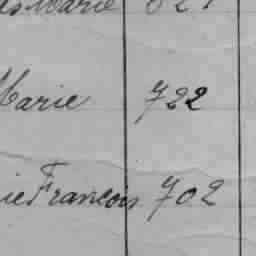 Marie 821
Marie 722
ie François 702